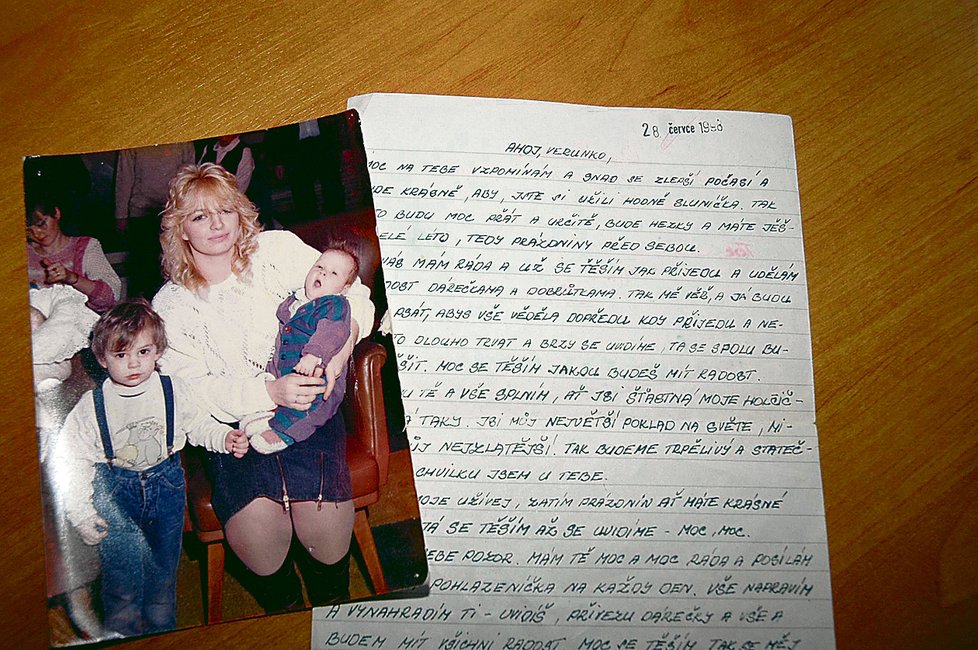 28 července 1998
AHOJ, VERUNKO,
MOC NA TEBE VZPOMÍNÁM A SNAD SE ZLEPŠÍ POČASÍ A
KRÁSNĚ, ABY JSTE SI UŽILI HODNĚ SLUNÍČKA. TAK
BUDU MOC PŘÁT A URČITĚ, BUDE HEZKY A MÁTE JEŠ-
LÉTO, TEDY PRÁZDNINY PŘED SEBOU.
MÁM RÁDA A UŽ SE TĚŠÍM JAK PŘIJEDU A UDĚLÁM
DÁREČKAMA A DOBRŮTKAMA. TAK MĚ VĚŘ, A JÁ BUDU
PSÁT, ABYS VŠE VĚDĚLA DOPŘEDU KDY PŘIJEDU A NE-
DLOUHO TRVAT A BRZY SE UVIDÍME, TA SE SPOLU BU-
MOC SE TĚŠÍM JAKOU BUDEŠ MÍT RADOST.
TĚ A VŠE SPLNÍM, AŤ JSI ŠŤASTNÁ MOJE HOLČIČ-
TAKY. JSI MŮJ NEJVĚTŠÍ POKLAD NA SVĚTE, NI-
NEJZLATĚJŠÍ. TAK BUDEME TRPĚLIVÝ A STATEČ-
CHVILKU JSEM U TEBE.
MOJE UŽÍVEJ, ZATÍM PRÁZDNIN AŤ MÁTE KRÁSNÉ
JÁ SE TĚŠÍM AŽ SE UVIDÍME - MOC, MOC.
SEBE POZOR. MÁM TĚ MOC A MOC RÁDA A POSÍLÁM
POHLAZENÍČKA NA KAŽDÝ DEN. VŠE NAPRAVÍM
A VYNAHRADÍM TI - UVIDÍŠ, PŘIVEZU DÁREČKY A VŠE A
BUDEM MÍT VŠICHNI RADOST. MOC SE TĚŠÍM TAK SE MĚJ